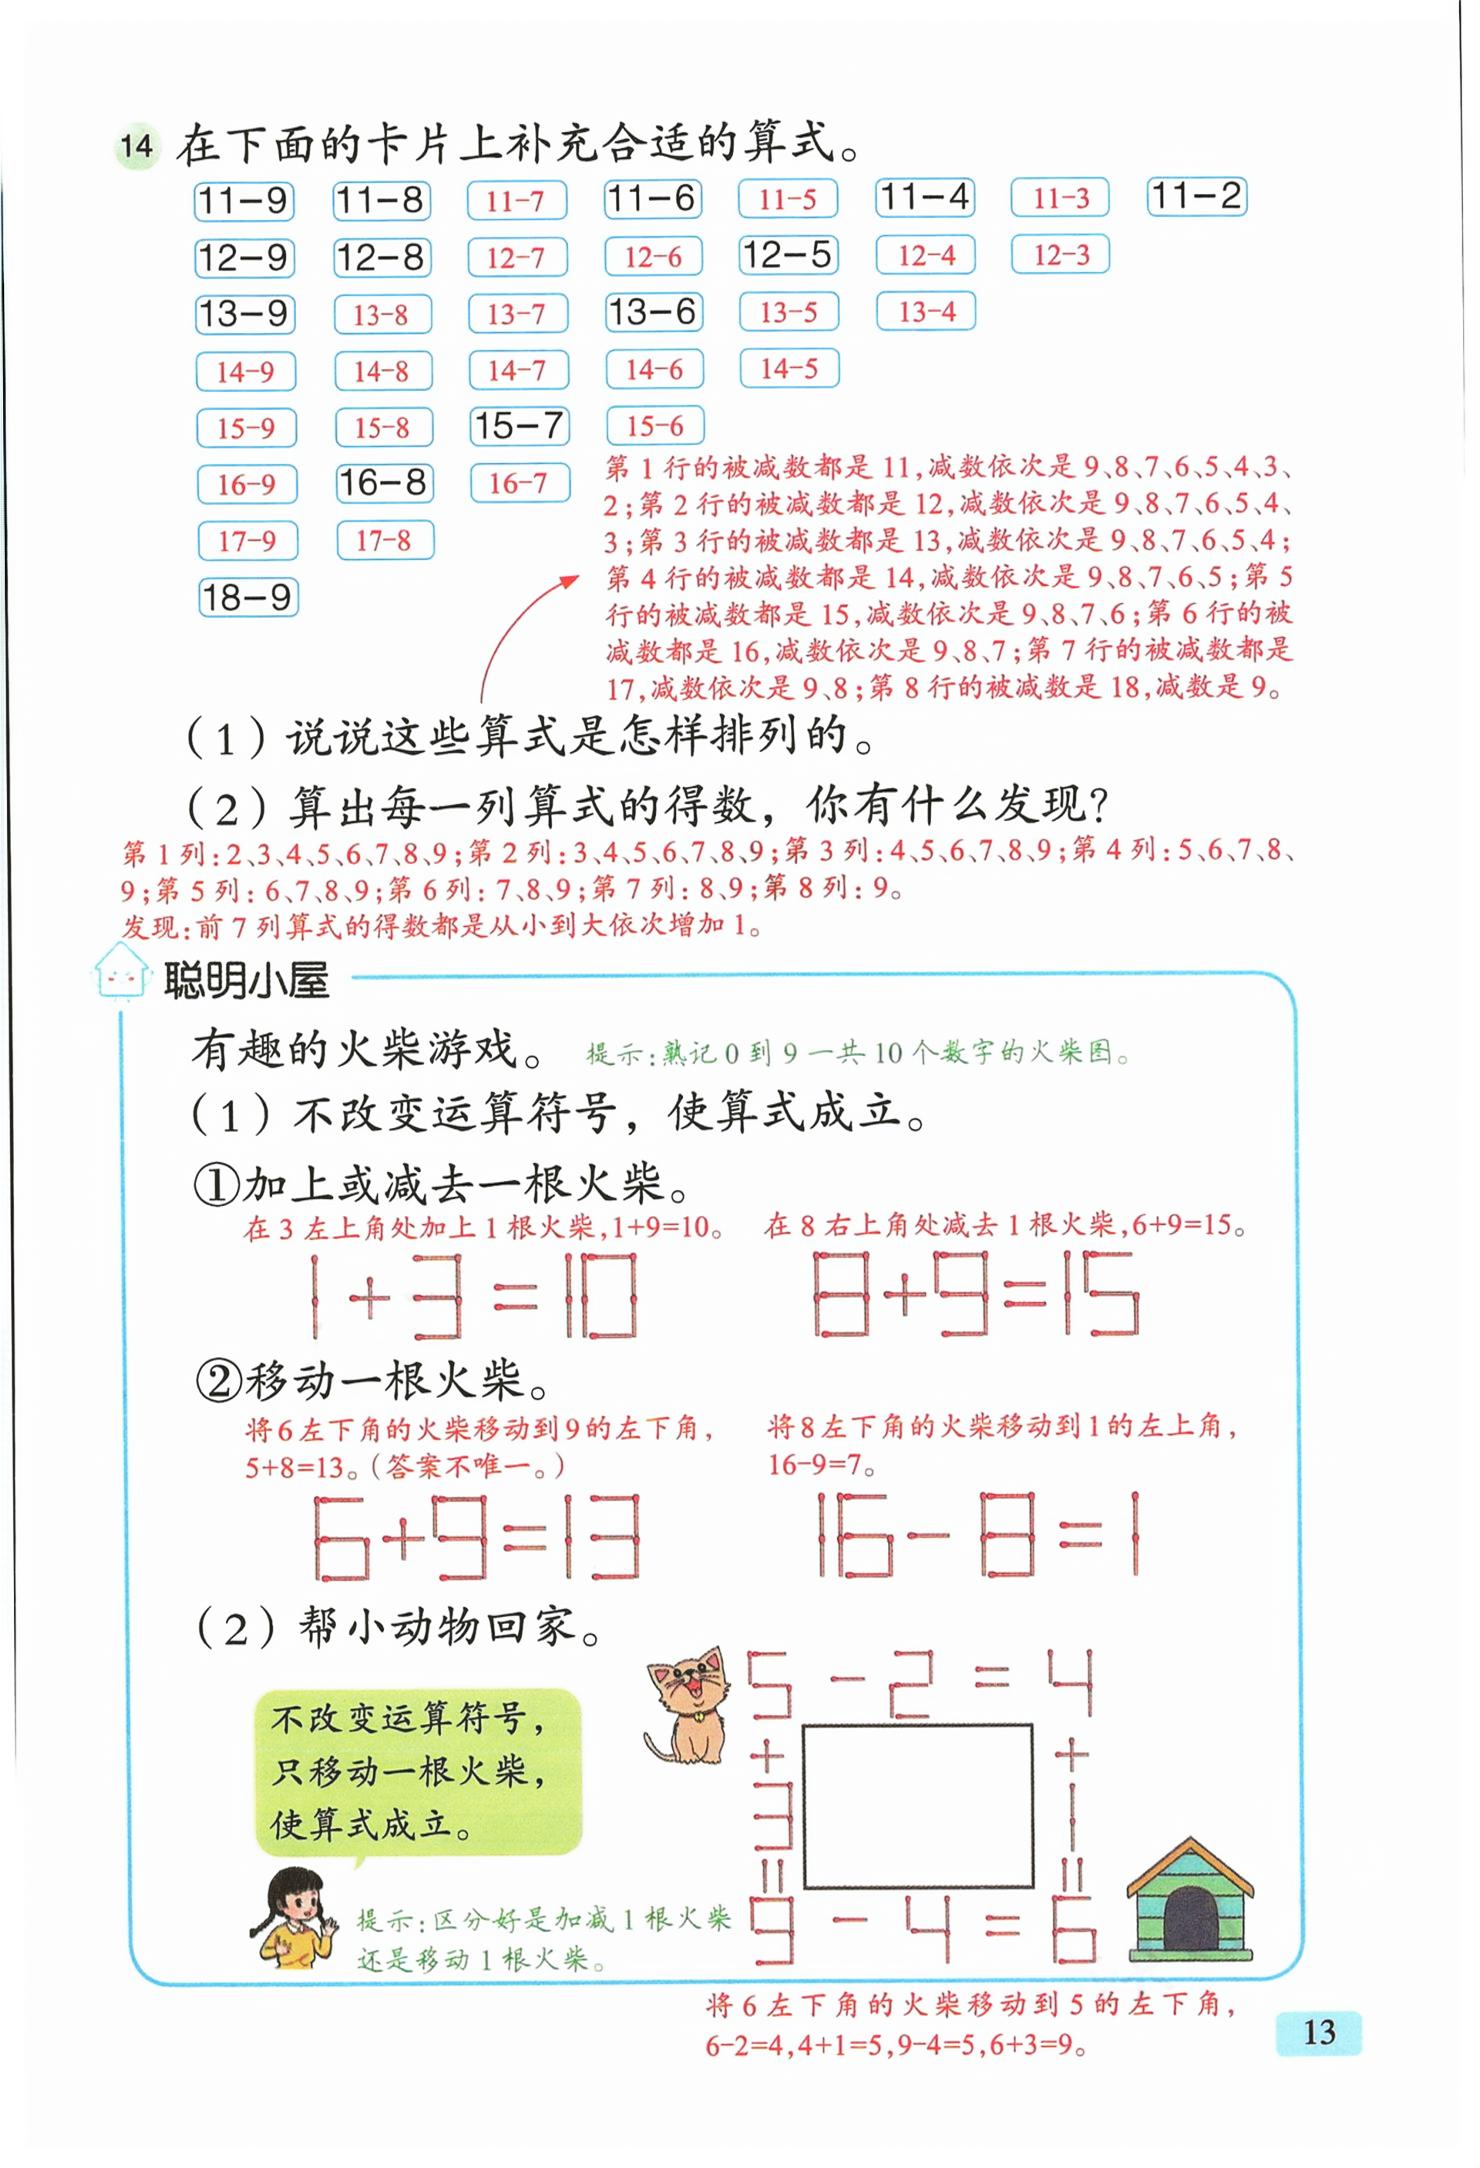 14 在下面的卡片上补充合适的算式。
11-9 11-8 11-7 11-6 11-5 11-4 11-3 11-2
12-9 12-8 12-7 12-6 12-5 12-4 12-3
13-9 13-8 13-7 13-6 13-5 13-4
14-9 14-8 14-7 14-6 14-5
15-9 15-8 15-7 15-6
16-9 16-8 16-7
17-9 17-8
18-9
第1行的被减数都是11,减数依次是9、8、7、6、5、4、3、
2;第2行的被减数都是12,减数依次是9、8、7、6、5、4、
3;第3行的被减数都是13,减数依次是9、8、7、6、5、4;
第4行的被减数都是14,减数依次是9、8、7、6、5;第5
行的被减数都是15,减数依次是9、8、7、6;第6行的被
减数都是16,减数依次是9、8、7;第7行的被减数都是
17,减数依次是9、8;第8行的被减数是18,减数是9。
(1)说说这些算式是怎样排列的。
(2)算出每一列算式的得数，你有什么发现?
第1列:2、3、4、5、6、7、8、9;第2列:3、4、5、6、7、8、9;第3列:4、5、6、7、8、9;第4列:5、6、7、8、
9;第5列:6、7、8、9;第6列:7、8、9;第7列:8、9;第8列:9。
发现:前7列算式的得数都是从小到大依次增加1。
聪明小屋
有趣的火柴游戏。 提示:熟记0到9一共10个数字的火柴图。
(1)不改变运算符号，使算式成立。
①加上或减去一根火柴。
在3左上角处加上1根火柴,1+9=10。 在8右上角处减去1根火柴,6+9=15。
1+3=10 8+9=15
②移动一根火柴。
将6左下角的火柴移动到9的左下角, 将8左下角的火柴移动到1的左上角,
5+8=13。(答案不唯一。) 16-9=7。
6+9=13 16-8=1
(2)帮小动物回家。
不改变运算符号，
只移动一根火柴，
使算式成立。
5-2=4
+ +
3 1
= =
9-4=6
提示:区分好是加减1根火柴
还是移动1根火柴。
将6左下角的火柴移动到5的左下角,
6-2=4,4+1=5,9-4=5,6+3=9。
13